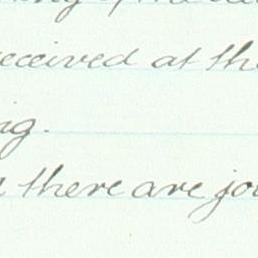 eceived at the
ng.
there are jou